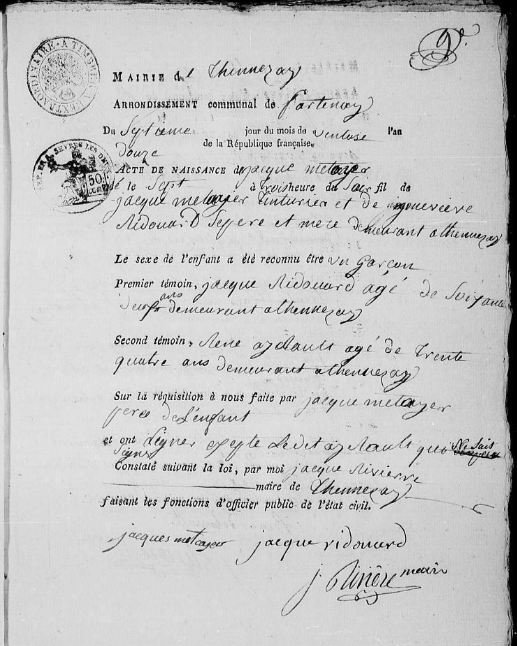 EXTRAORDINAIRE A TIMBRE
SEVRES LES DEUX
50
MAIRIE de thennezay
ARRONDISSEMENT communal de Partenay
Du Septieme jour du mois de ventose l'an
de la République française
Douze
ACTE DE NAISSANCE de jacque metayer
né le Sept à troisheure du Soir fil de
jacque metayer tinturier et de genevieve
Ridouard Sepere et mere demeurant athennezay
Le sexe de l'enfant a été reconnu être un garçon
Premier témoin, jacque Ridouard agé de Soixante
ans
demeurant athennezay
Second témoin, René ayrault agé de trente
quatre ans demeurant athennezay
Sur la réquisition à nous faite par jacque metayer
pere de l'enfant
et ont Signer exepte Ledit ayrault qui ne Sait
Signer
Constaté suivant la loi, par moi jacque Rivierre
maire de thennezay
faisant les fonctions d'officier public de l'état civil.
jacques metayer jacque ridouard
j Rivière maire